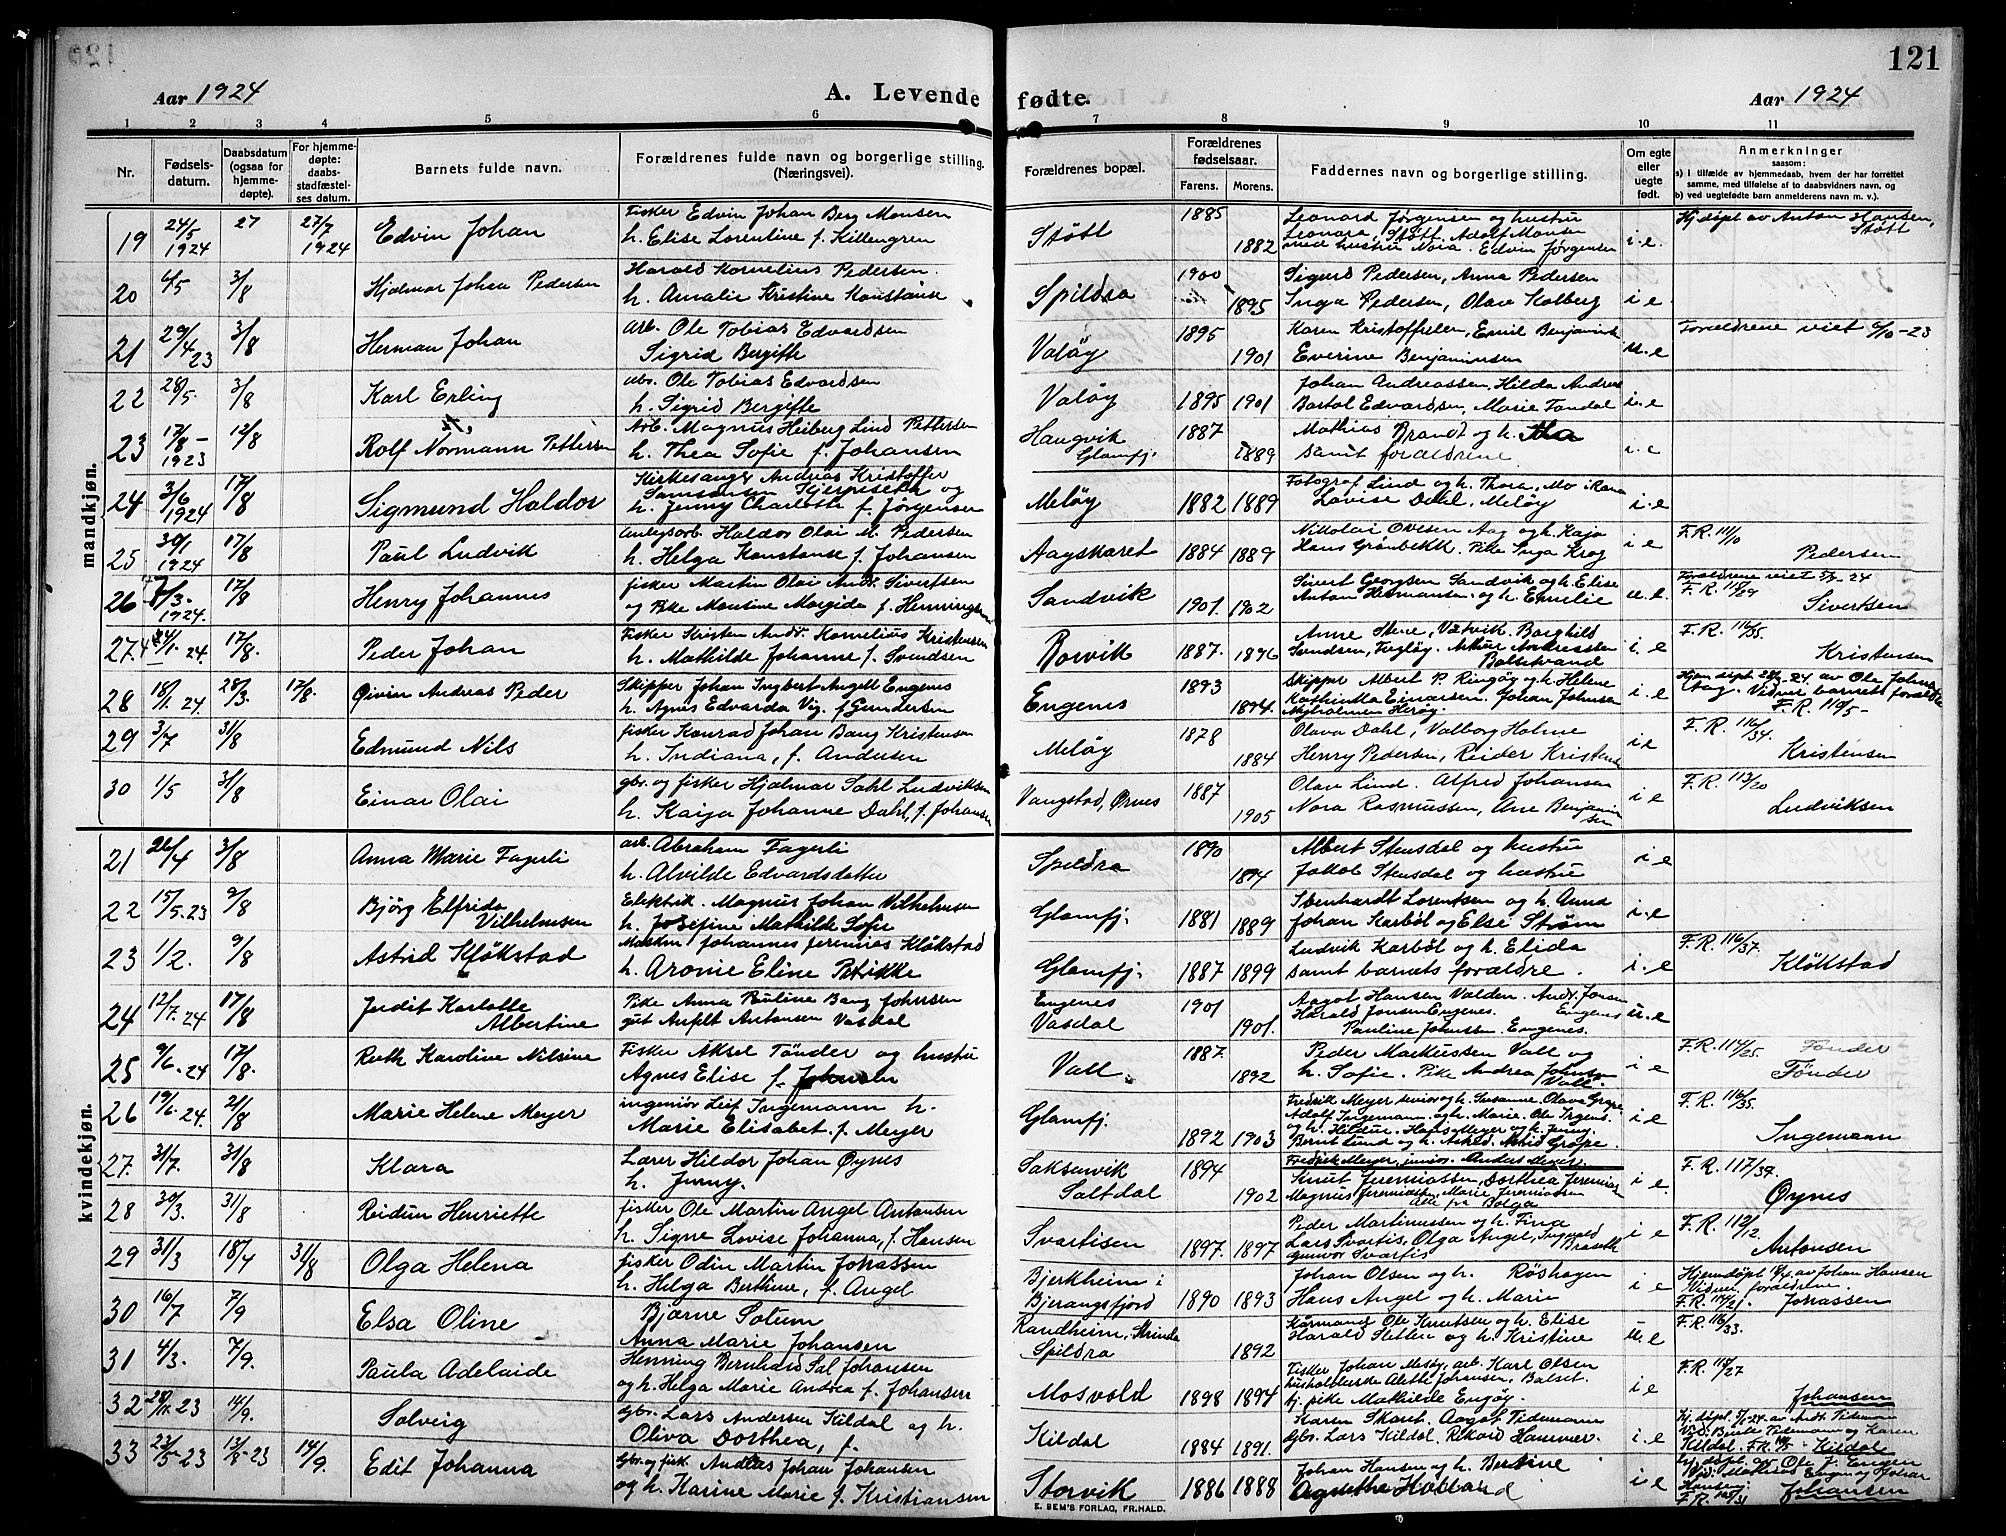 121
Aar 1924
A. Levende fødte.
Aar 1924
1 2 3 4 5 6 7 8 9 10 11
Nr.
Fødselsdatum.
Daabsdatum (ogsaa for hjemmedøpte).
For hjemmedøpte: daabsstadfæstelses datum.
Barnets fulde navn.
Forældrenes fulde navn og borgerlige stilling. (Næringsvei).
Forældrenes bopæl.
Forældrenes fødselsaar.
Farens. Morens.
Faddernes navn og borgerlige stilling.
Om egte eller uegte født.
Anmerkninger
saasom:
a) i tilfælde av hjemmedaab, hvem der har forrettet samme, med tilføielse af to daabsvidners navn, og
b) ved uegtefødte barn anmelderens navn m. v.)
mandkjøn.
19 24/5 1924 27 27/7 1924 Edvin Johan
Fisker Edvin Johan Berg Monsen
h. Elise Lorentine f. Killengren
Støtt 1885 1882
Leonard Jørgensen og hustru
Leonara, Støtt. Adolf Monsen
med hustru Nora. Edvin Jørgensen
i.e.
Hj.døpt av Anton Hansen, Støtt
20 4/5 3/8 Hjalmar Johan Pedersen
Harald Kornelius Pedersen.
h. Amalie Kristine Konstanse
Spildra 1900 1895
Sigurd Pedersen, Anna Pedersen
Inga Pedersen, Olav Kolberg
i e
21 29/4 23 3/8 Herman Johan
arb. Ole Tobias Edvardsen
Sigrid Bergifte
Valøy 1895 1901
Karen Kristoffersen, Emil Benjamins
Everine Benjaminsen
u.e
Forældrene viet 6/10-23
22 28/5. 3/8 Karl Erling
arb. Ole Tobias Edvardsen
h. Sigrid Bergifte
Valøy 1895 1901
Johan Andreassen, Hilda Andreas
Bartol Edvardsen, Marie Tondal
i.e
23 17/8- 1923 12/8 Rolf Normann Pettersen
Arb. Magnus Heiberg Lind Pettersen
h. Thea Sofie f. Johansen
Haugvik Glomfj. 1887 1889
Mathias Brandt og h.
samt forældrene
i. e
24 3/6 1924 17/8 Sigmund Haldor
Kirkesanger Andreas Kristoffer
og
h. Jenny Charlotte f. Jørgensen
Meløy 1882 1889
Fotograf Lind og h. Thora, Mo i Rana
Lovise Dahl, Meløy
i.e
25 30/1 1924 17/8 Paul Ludvik
Anlegsarb. Haldor Olai M. Pedersen
h. Helga Konstanse f. Johansen
Aagskaret 1884 1889
Nikolai Ovesen Aag og h. Kaja
Hans Grønbekk. Pike Inga Krog
i e
F.R. 111/10 Pedersen
26 7/3- 1924. 17/8 Henry Johannes
fisker Martin Olai Andr. Sivertsen
og Pike Monsine Margida f. Henningsen
Sandvik 1901. 1902
Sivert Georgsen Sandvik og h. Elise
Anton Hermansen og h. Emelie
u.e.
Forældrene viet 5/9-24
F.R. 115/29 Sivertsen
27. 24/1. 24. 17/8. Peder Johan
Fisker Kristen Andr. Kornelius Kristensen
h. Mathilde Johanne f. Svendsen
Rorvik 1887. 1896
Anne Stene, Vatvik. Borghild
Svendsen, Tegløy. Arthur Andreassen
Bolstrand
i e
F.R. 116/35. Kristensen
28 18/1. 24. 28/3. 17/8. Øivin Andreas Peder
Skipper Johan Ingbert Angell Engenes
h. Agnes Edvarda Vig. f Gundersen
Engenes 1893 1894.
Skipper Albert P. Ringøy og h. Helene
Kathinka Einarsen. Johan Johnsen
Myholmen Herøy.
i e
Hjem.døpt 28/3-24. av Ole Johnsen
Aag. Vidner barnets forældre
F.R. 110/5-
29 3/7 31/8 Edmund Nils
fisker Konrad Johan Bang Kristensen
h. Indiana, f. Andersen
Meløy 1878 1884
Olava Dahl, Valborg Holme
Henry Pedersen, Reider Kristensen
i e
F.R. 116/34. Kristensen
30 1/5 31/8 Einar Olai
gbr. og fisker Hjalmar Dahl Ludviksen
h. Kaija Johanne Dahl, f. Johansen
Vangstad, Ørnes 1887 1905
Olav Lind. Alfred Johansen
Nora Rasmussen, Ane Benjaminsen
i e
F.R. 113/20 Ludviksen
kvindekjøn.
21 26/4 3/8 Anna Marie Fagerli
arb. Abraham Fagerli
h. Alvilde Edvardsdatter
Spildra 1890 1894
Albert Stensdal og hustru
Jakob Stensdal og hustru
i e
22 15/5-23 9/8 Bjørg Elfrida Vilhelmsen
Elektrik. Magnus Johan Vilhelmsen
h. Josefine Mathilde Sofie
Glomfj. 1881 1889
Ebenhardt Lorentsen og h. Anna
Johan Karbøl og Else Strøm
i.e
23 1/2. 9/8 Astrid Kløkstad
Maskin Johannes Jeremias Kløkstad
h. Aronie Eline Petrikke
Glomfj. 1887 1899
Ludvik Karbøl og h. Elida
samt barnets forældre.
i. e
F.R. 116/37. Kløkstad
24 12/7. 24 17/8 Judit Karlotte Albertine
Pike Anna Pauline Bang Johnsen
gut Anfelt Antonsen Vasdal
Engenes Vasdal 1901 1901.
Aagot Hansen Valden. Andr. Jonsen
Harald Jonsen Engenes. Engenes
Pauline Johnsen. Engenes.
u.e
25 9/6. 24 17/8. Ruth Karoline Nilsine
Fisker Aksel Tønder og hustru
Agnes Elise f. Johnsen
Vall. 1887. 1892
Peder Markussen Vall og
h. Sofie. Pike Andrea Johnsen
Vall.
i e
F.R. 114/25. Tønder
Tønder
26 19/6. 24. 21/8 Marie Helene Meyer
ingeniør Leif Ingemann h.
Marie Elisabet. f. Meyer
Glomfj. 1892 1903
Fredrik Meyer senior og h. Susanne. Olava Grøpe
Adolf Ingemann. og h. Marie. Ole Irgens.
og h. Hildur. Hans Meyer og h. Jenny.
Bernt Lund og h. Astrid Grøpe.
Fredrik Meyer, junior. Anders Meyer.
i e
F.R. 116/35. Ingemann
27. 31/7. 31/8 Klara
Lærer Hildor Johan Øynes
h. Jenny.
Saksenvik Saltdal 1894 1902
Knut Jeremiassen, Dorthea Jeremias
Magnus Jeremiassen, Marie Jeremiassen
Alle fra Bolga
i e.
F.R. 117/39. Øynes
28 30/3. 31/8 Reidun Henriette
fisker Ole Martin Angel Antonsen
h. Signe Lovise Johanna, f. Hansen
Svartisen 1897. 1897
Peder Martinussen og h. Tina
Lars Svartis, Olga Angel, Ingvald
Gunvor Svartis
i e
F.R. 112/12 Antonsen
29 31/3 18/4 31/8 Olga Helena
fisker Odin Martin Johassen
h. Helga Berthine, f. Angel
Bjerkheim i Bjerangsfjord 1890 1893
Johan Olsen og h. Røshagen
Hans Angel og h. Marie
i e
Hjemdøpt 18/4 av Johan Hansen
Vidner, forældrene
F.R. 114/21. Johassen
30 16/7 7/9 Elsa Oline
Bjarne Solum
Anna Marie Johansen
Randheim, Strinda
Spildra 1892
Formand Ole Knutsen og h. Elise
Harald Sletten og h. Kristine
u. e
F.R. 116/33.
31 4/3. 7/9. Paula Adelaide
Henning Bernhard Sal Johansen
og h. Helga Marie Andrea f. Johansen
Mosvold 1898 1894
Fisker Johan Mesøy, arb. Karl Olsen
husholderske Alette Johansen, Bolset.
tj. pike Mathilde Engøy.
i e
F.R. 115/27 Johansen
32 28/11. 23 14/9. Solveig
Gbr. Lars Andersen Kildal og h.
Oliva Dorthea, f.
Kildal 1884 1891.
Karen Skaret. Aagot Tidemann
Gbr. Lars Kildal. Rikard Hammer.
i e
Hj.døpt 5/1-24. av Andr. Tidemann
Vid. Bernt Tidemann og Karen
Kildal. F.R. Kildal
33 23/5-23 13/8-23 14/9. Edit Johanna
Gbr. og fisk. Andreas Johan Johansen
og h. Karine Marie f. Kristiansen
Storvik 1886 1888
Johan Hansen og h. Bertine
Agnethe Holland
i e
hj. døpt. av Ole J. Engen
Vid. Mathias Engen og Johan
Hansen.
F.R. 105/31 Johansen
E. SEM'S FORLAG, FR.HALD.